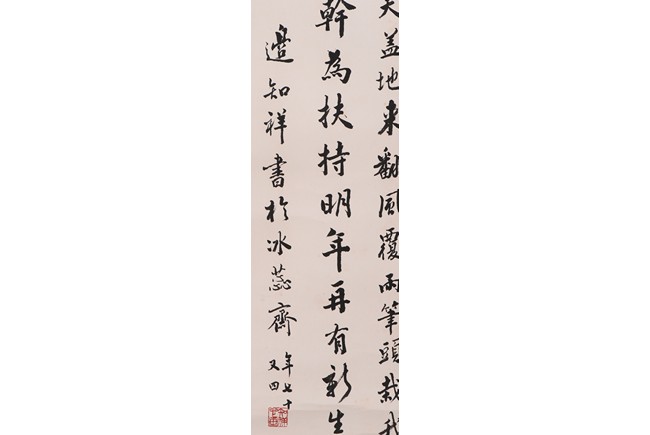 盖地来翻風覆雨筆頭栽
幹為扶持明年再有新生
邊知祥書於冰蕊齋
年七十
又四